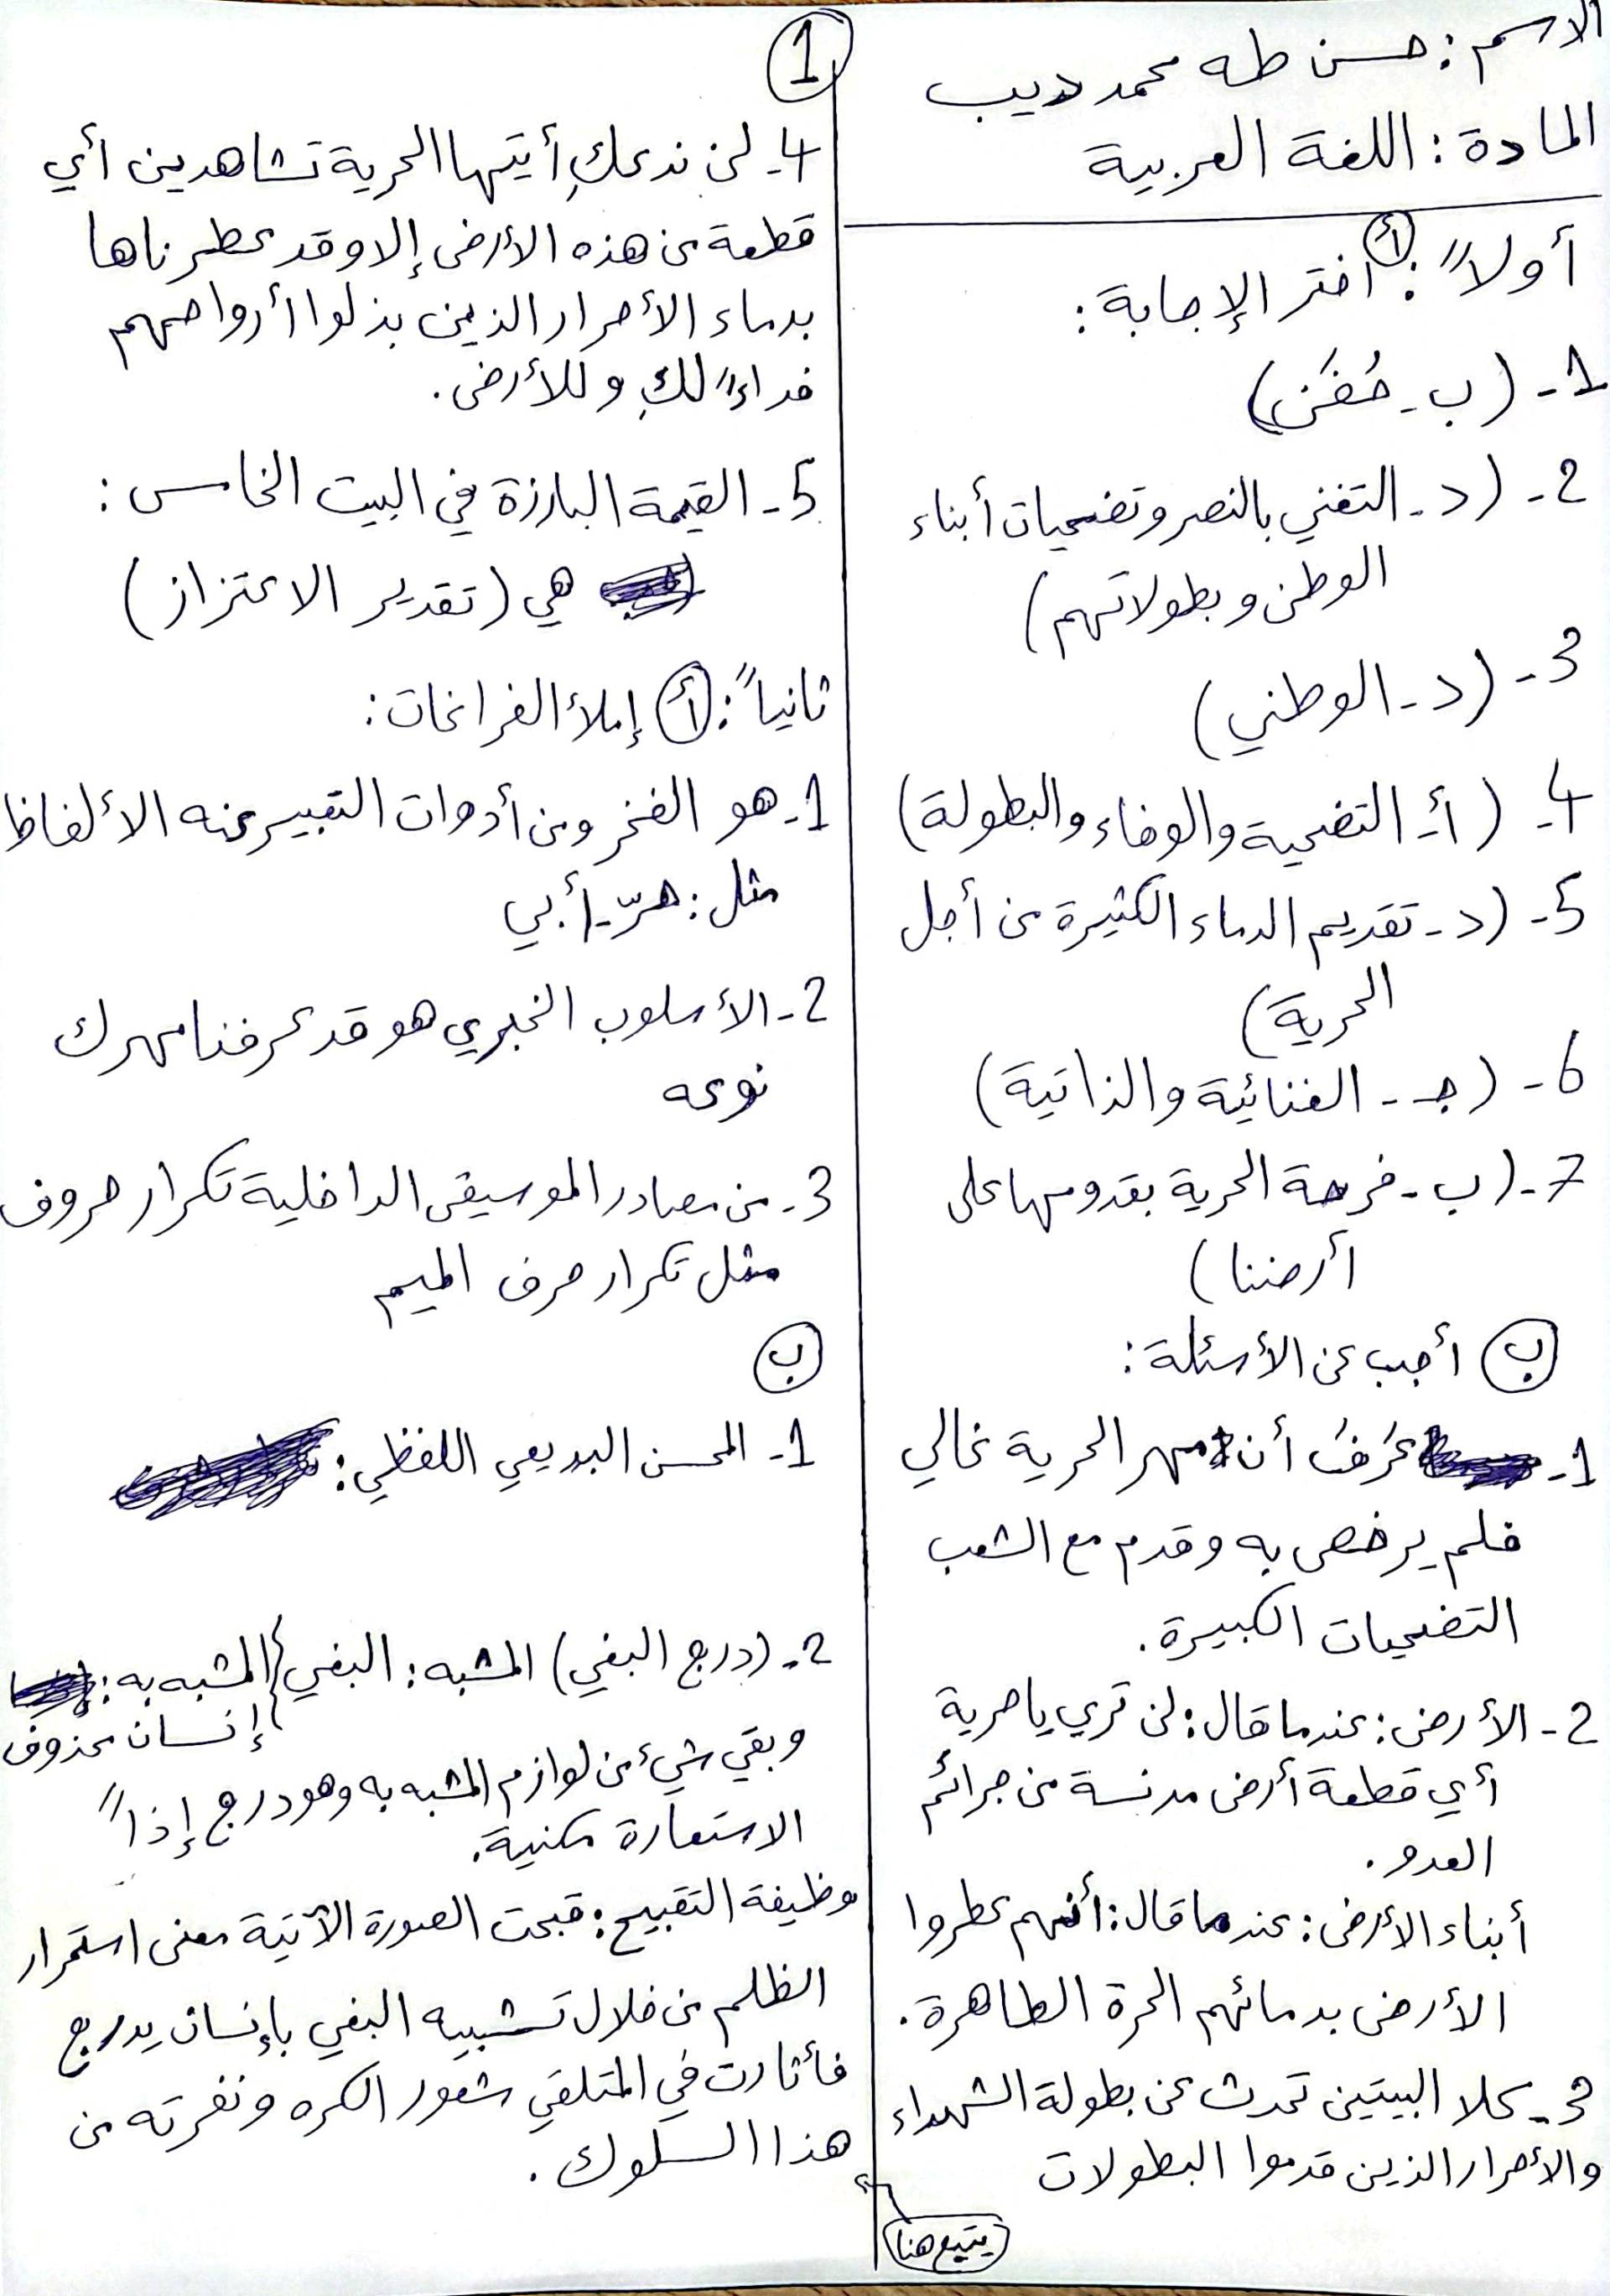 الاسم: حسن طه محمد ديب
المادة: اللغة العربية
أولاً: أ اختر الإجابة:
1- (ب- خُفَن)
2- (د- التغني بالنصر وتضحيات أبناء
الوطن وبطولاتهم)
3- (د- الوطني)
4- (أ- التضحية والوفاء والبطولة)
5- (د- تقديم الدماء الكثيرة من أجل
الحرية)
6- (جـ- الغنائية والذاتية)
7- (ب- فرحة الحرية بقدومها على
أرضنا)
ب أجب عن الأسئلة:
1- عَرَفَ أن مهر الحرية غالي
فلم يرخص به وقدم مع الشعب
التضحيات الكبيرة.
2- الأرض: عندما قال: لن تري يا حرية
أي قطعة أرض مدنسة من جرائم
العدو.
أبناء الأرض: عندما قال: أنهم عطروا
الأرض بدمائهم الحرة الطاهرة.
3- كلا البيتين تحدث عن بطولة الشهداء
والأحرار الذين قدموا البطولات
يتبع هنا
1
4- لن ندعكِ أيتها الحرية تشاهدين أي
قطعة من هذه الأرض إلا وقد عطرناها
بدماء الأحرار الذين بذلوا أرواحهم
فداءً لكِ وللأرض.
5- القيمة البارزة في البيت الخامس:
هي (تقدير الاعتزاز)
ثانياً: أ إملأ الفراغات:
1- هو الفخر ومن أدوات التعبير عنه الألفاظ
مثل: حرّ- أبي
2- الأسلوب الخبري هو قد عرفنا مهرك
نوعه
3- من مصادر الموسيقى الداخلية تكرار حروف
مثل تكرار حرف الميم
ب
1- المحسن البديعي اللفظي:
2- (درج البغي) المشبه: البغي المشبه به:
إنسان محذوف
وبقي شيء من لوازم المشبه به وهو درج إذاً
الاستعارة مكنية.
وظيفة التقبيح: قبحت الصورة الآتية معنى استمرار
الظلم من خلال تشبيه البغي بإنسان يدرج
فأثارت في المتلقي شعور الكره ونفرته من
هذا السلوك.